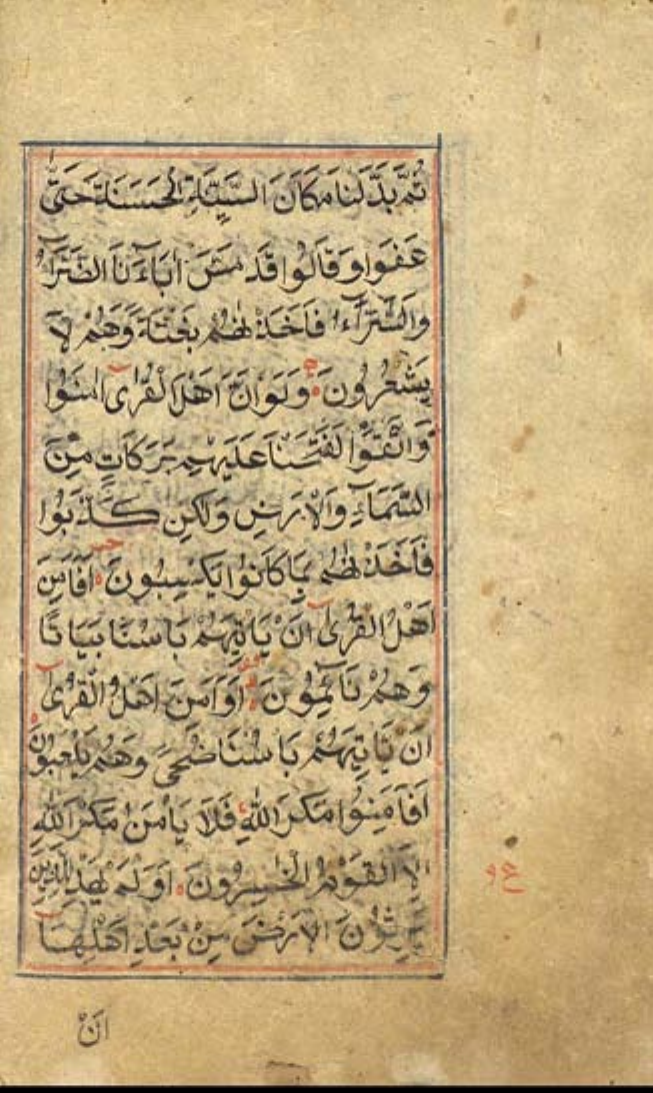 ثُمَّ بَدَّلْنَا مَكَانَ السَّيِّئَةِ الْحَسَنَةَ حَتّٰى
عَفَوْا وَقَالُوا قَدْ مَسَّ اٰبَاءَنَا الضَّرَّاءُ
وَالسَّرَّاءُ فَاَخَذْنٰهُمْ بَغْتَةً وَهُمْ لَا
يَشْعُرُونَ وَلَوْ اَنَّ اَهْلَ الْقُرٰى اٰمَنُوا
وَاتَّقَوْا لَفَتَحْنَا عَلَيْهِمْ بَرَكَاتٍ مِنَ
السَّمَاءِ وَالْاَرْضِ وَلٰكِنْ كَذَّبُوا
فَاَخَذْنٰهُمْ بِمَا كَانُوا يَكْسِبُونَ اَفَاَمِنَ
اَهْلُ الْقُرٰى اَنْ يَاْتِيَهُمْ بَاْسُنَا بَيَاتًا
وَهُمْ نَائِمُونَ اَوَاَمِنَ اَهْلُ الْقُرٰى
اَنْ يَاْتِيَهُمْ بَاْسُنَا ضُحًى وَهُمْ يَلْعَبُونَ
اَفَاَمِنُوا مَكْرَ اللّٰهِ فَلَا يَاْمَنُ مَكْرَ اللّٰهِ
اِلَّا الْقَوْمُ الْخٰسِرُونَ اَوَلَمْ يَهْدِ لِلَّذِينَ
يَرِثُونَ الْاَرْضَ مِنْ بَعْدِ اَهْلِهَا
اَنْ